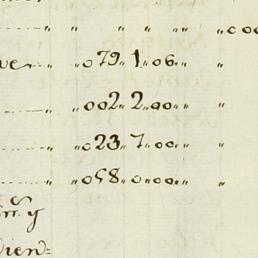 " " " " " "co
ve— " "079" 1" 06" "
" "002" 2" 00" "
" "023" 7" 00" "
" "058" 0" 00" "
m. y
dien=